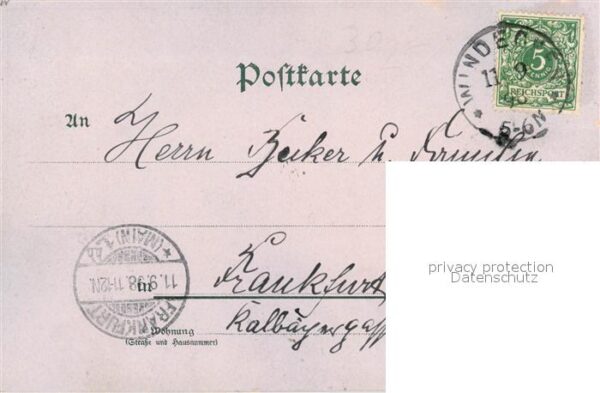 Postkarte
WINDECKEN
11 9
98
5-6N
5
REICHSPOST
An
Herrn Becker u. Familie
privacy protection
Datenschutz
FRANKFURT
(MAIN) 1.
11.9.98.11-12N.
in
Frankfurt
Wohnung
(Straße und Hausnummer)